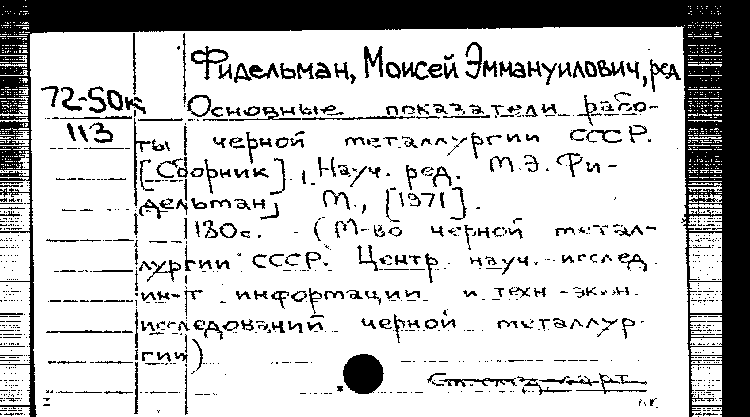 Фидельман, Моисей Эммануилович, ред
72-50к Основные показатели рабо-
113 ты черной металлургии СССР.
[Сборник]. Науч. ред. М.Э. Фи-
дельман] М., [1971].
180с. (М-во черной метал-
лургии СССР. Центр. науч.-исслед.
ин-т информации и техн-экон.
исследований черной металлур-
гии)
См. след. карт.